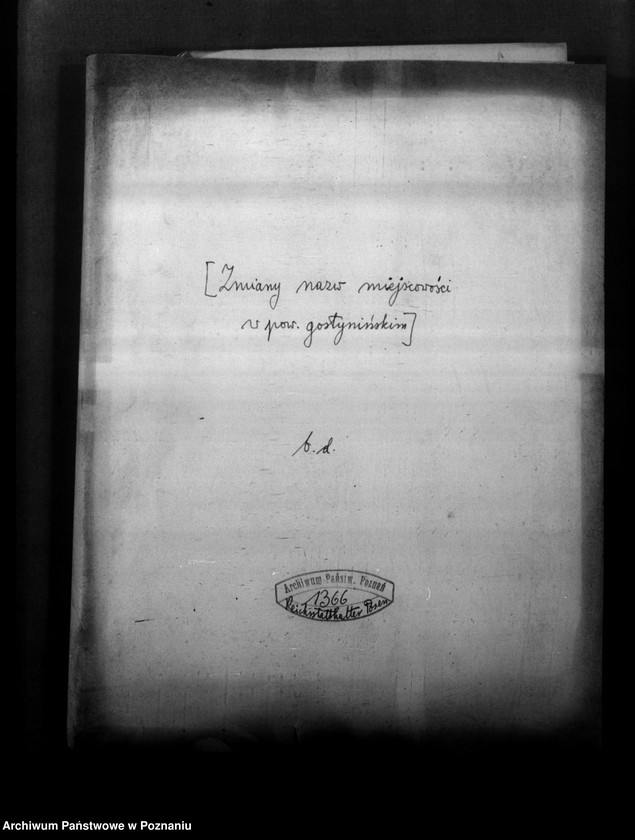 [Zmiany nazw miejscowości
w pow. gostynińskim]
b.d.
Archiwum Państw. Poznań
1366
Reichsstatthalter Posen
Archiwum Państwowe w Poznaniu